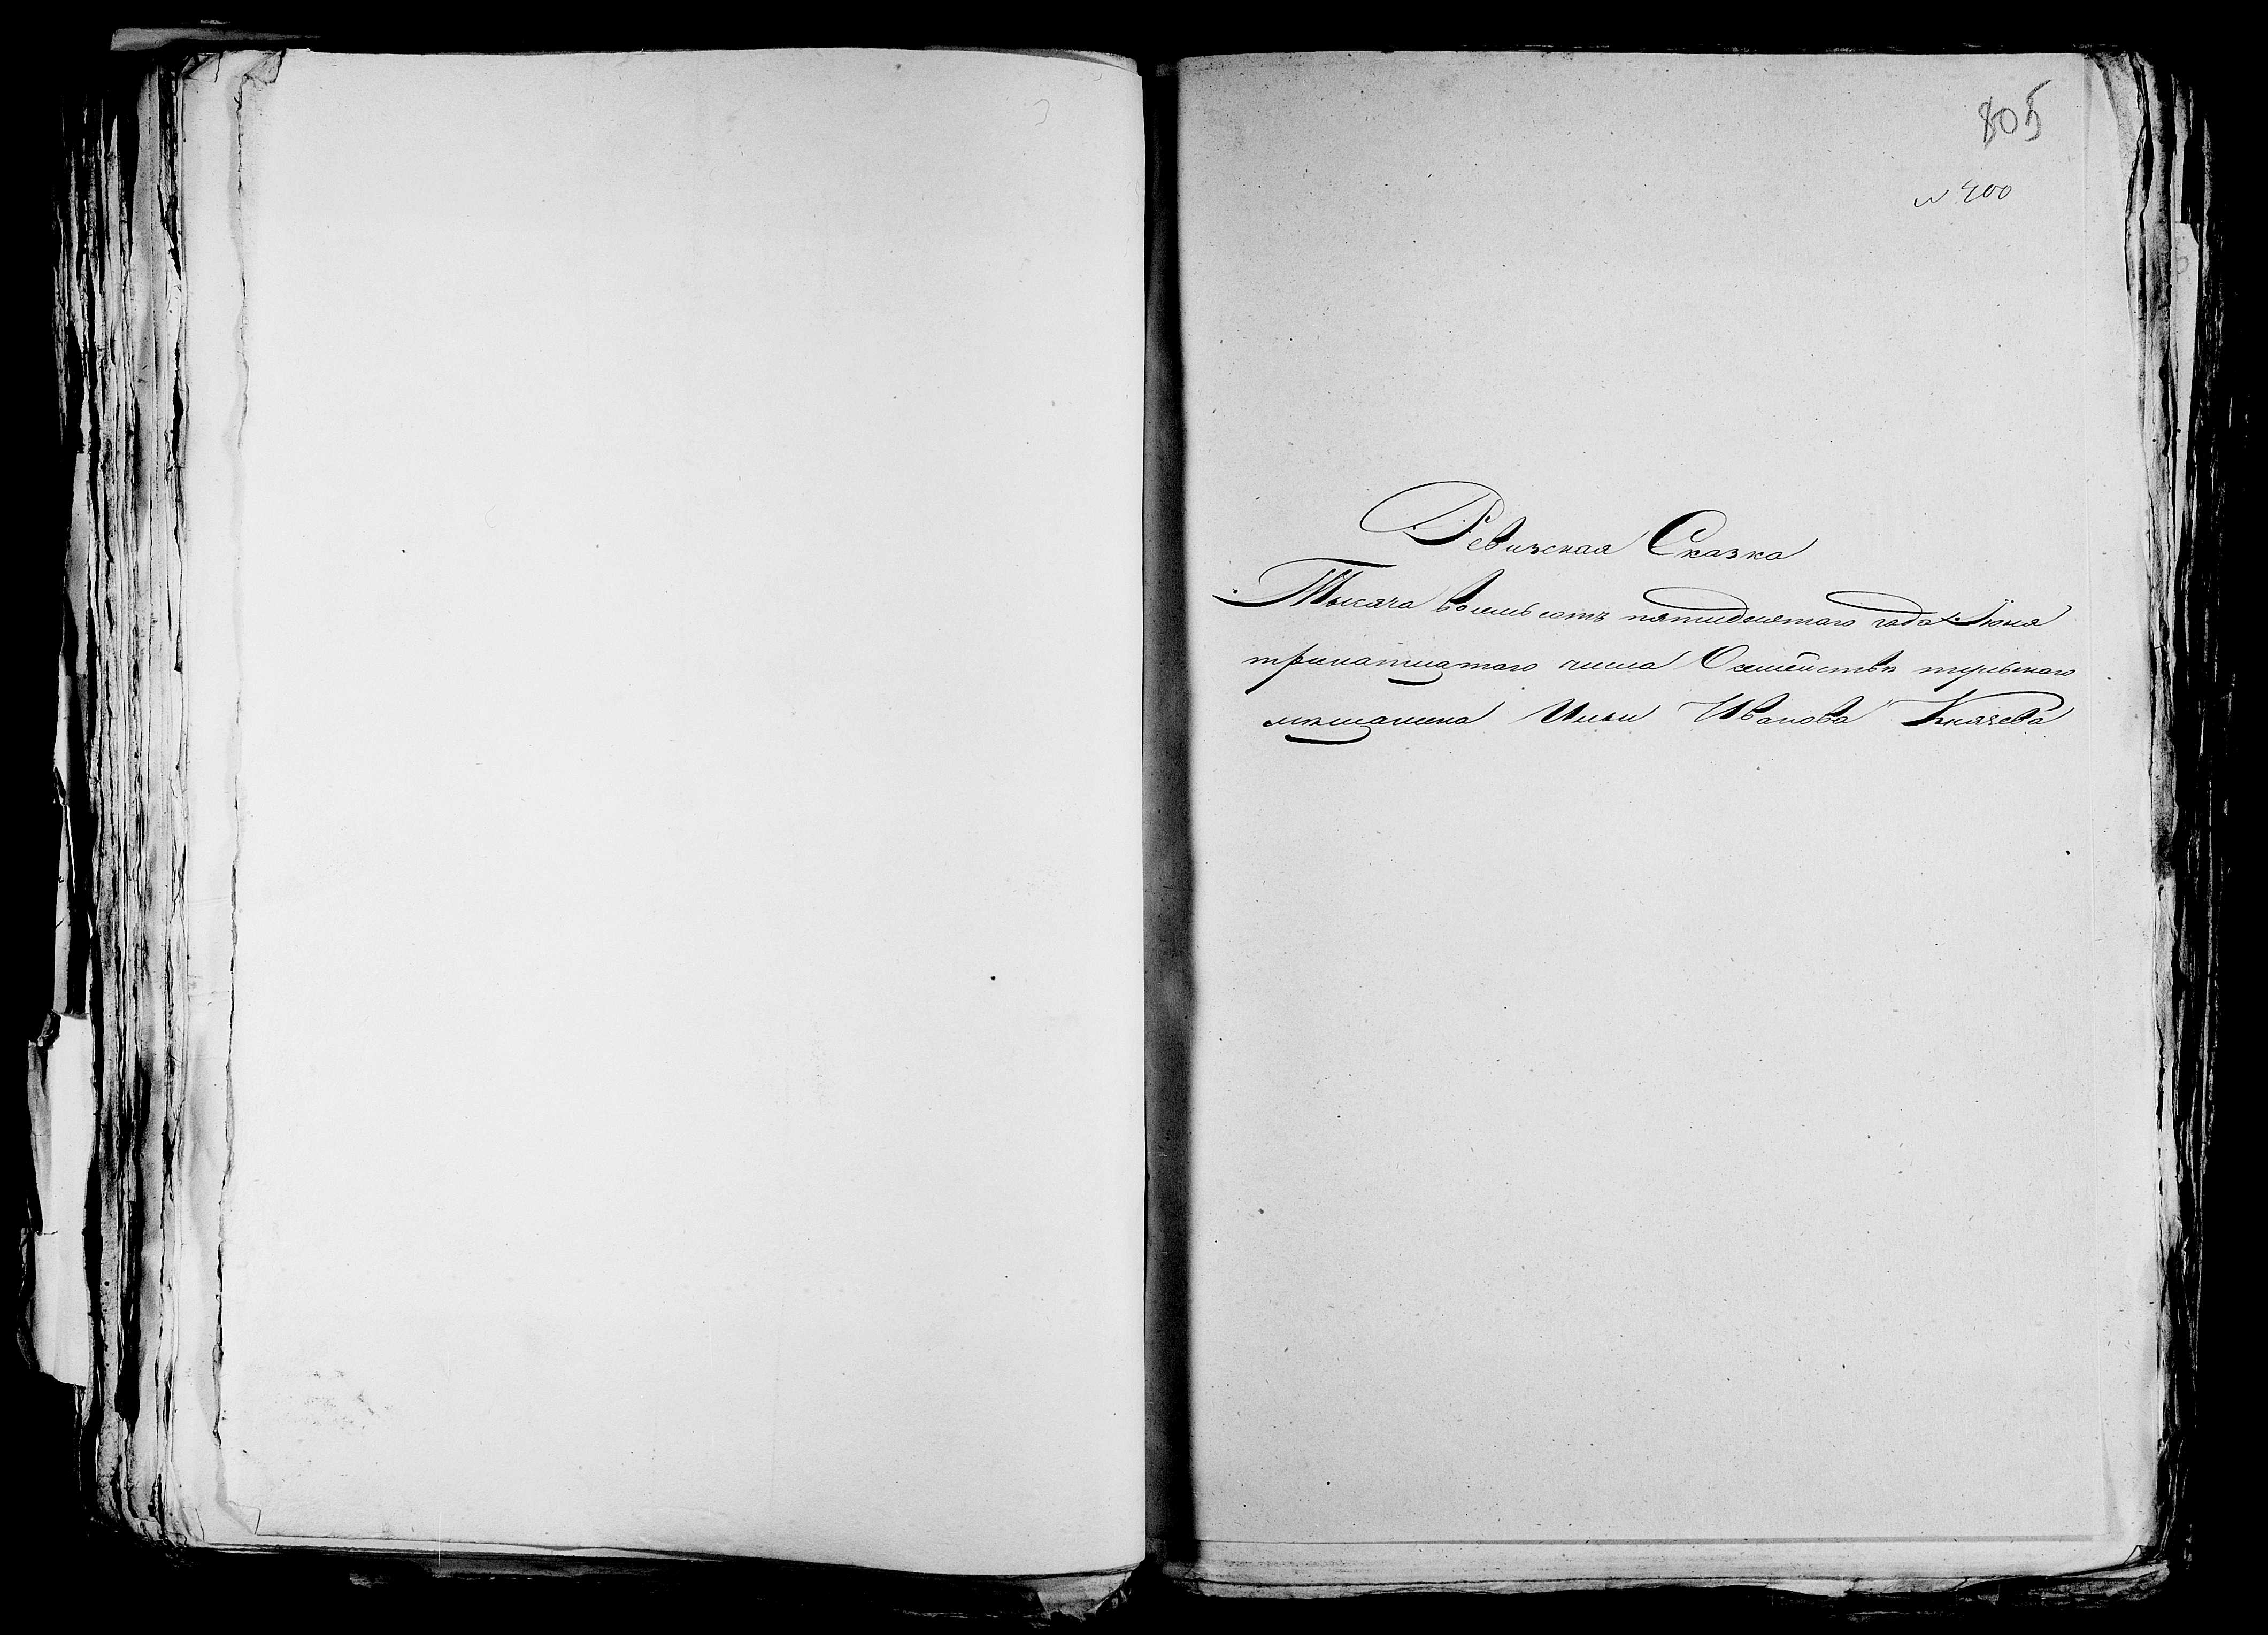 805
№ 400
Ревизская Сказка
Тысяча восемь сотъ пятидесятаго года Июня
тринатцатаго числа О семействѣ тульскаго
мѣщанина Ильи Иванова Князева